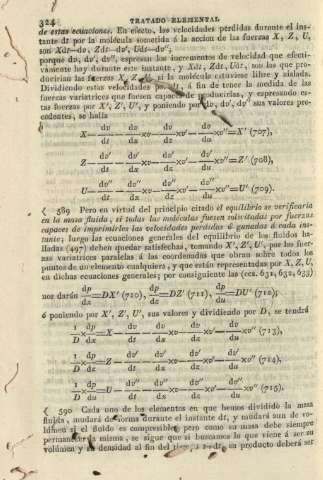 324 TRATADO ELEMENTAL
de estas ecuaciones. En efecto, las velocidades perdidas durante el ins-
tante dt por la molécula sometida á la accion de las fuerzas X, Z, U,
son Xdt—dv, Zdt—dv', Udt—dv'';
porque dv, dv', dv'', espresan los incrementos de velocidad que efecti-
vamente hay durante este instante, y Xdt, Zdt, Udt, son las que pro-
ducirian las fuerzas X, Z, U, si la molécula estuviese libre y aislada.
Dividiendo estas velocidades por dt, á fin de tener la medida de las
fuerzas variatrices que fuesen capaces de producirlas, y espresando es-
tas fuerzas por X', Z', U', y poniendo por dv, dv', dv'' sus valores pre-
cedentes, se halla
X—dv/dt—dv/dx×v—dv/dz×v'—dv/du×v''=X' (707),
Z—dv'/dt—dv'/dx×v—dv'/dz×v'—dv'/du×v''=Z' (708),
U—dv''/dt—dv''/dx×v—dv''/dz×v'—dv''/du×v''=U' (709).
589 Pero en virtud del principio citado el equilibrio se verificaria
en la masa fluida, si todas las moléculas fuesen solicitadas por fuerzas
capaces de imprimirles las velocidades perdidas ó ganadas á cada ins-
tante; luego las ecuaciones generales del equilibrio de los fluidos ha-
lladas (497) deben quedar satisfechas, tomando X', Z', U', por las fuer-
zas variatrices paralelas á las coordenadas que obran sobre todos los
puntos de un elemento cualquiera, y que están representadas por X, Z, U,
en dichas ecuaciones generales; por consiguiente las (ecs. 631, 632, 633)
nos darán dp/dx=DX' (710), dp/dz=DZ' (711), dp/du=DU' (712);
ó poniendo por X', Z', U', sus valores y dividiendo por D, se tendrá
1/D dp/dx=X—dv/dt—dv/dx×v—dv/dz×v'—dv/du×v'' (713),
1/D dp/dz=Z—dv'/dt—dv'/dx×v—dv'/dz×v'—dv'/du×v'' (714),
1/D dp/du=U—dv''/dt—dv''/dx×v—dv''/dz×v'—dv''/du×v'' (715).
590 Cada uno de los elementos en que hemos dividido la masa
fluida, mudará de forma durante el instante dt, y mudará aun de vo-
lúmen si el fluido es compresible; pero como su masa debe siempre
permanecer la misma, se sigue que si buscamos lo que viene á ser su
volúmen y su densidad al fin del tiempo su producto deberá ser